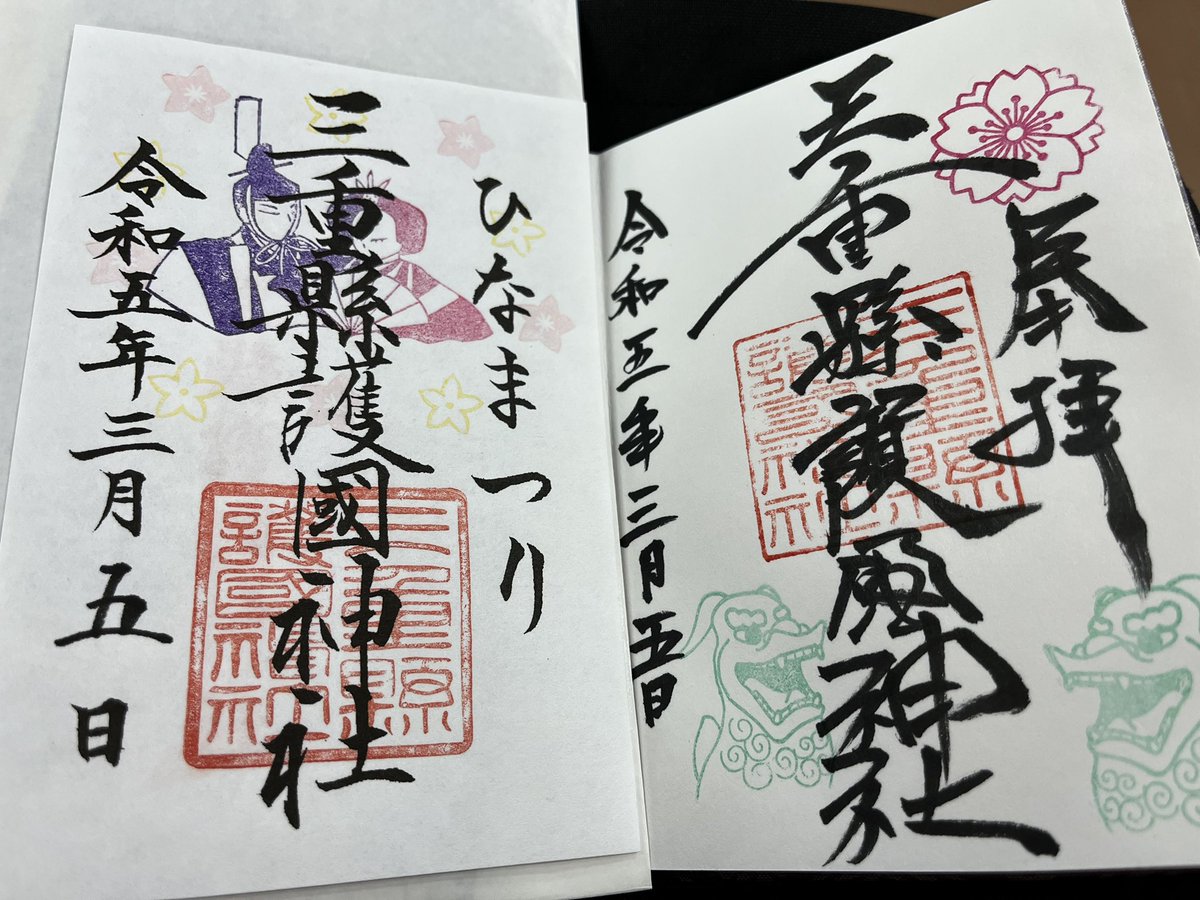 奉拝
三重縣護國神社
令和五年三月五日
ひなまつり
三重縣護國神社
令和五年三月五日
三重縣護國神社
三重縣護國神社